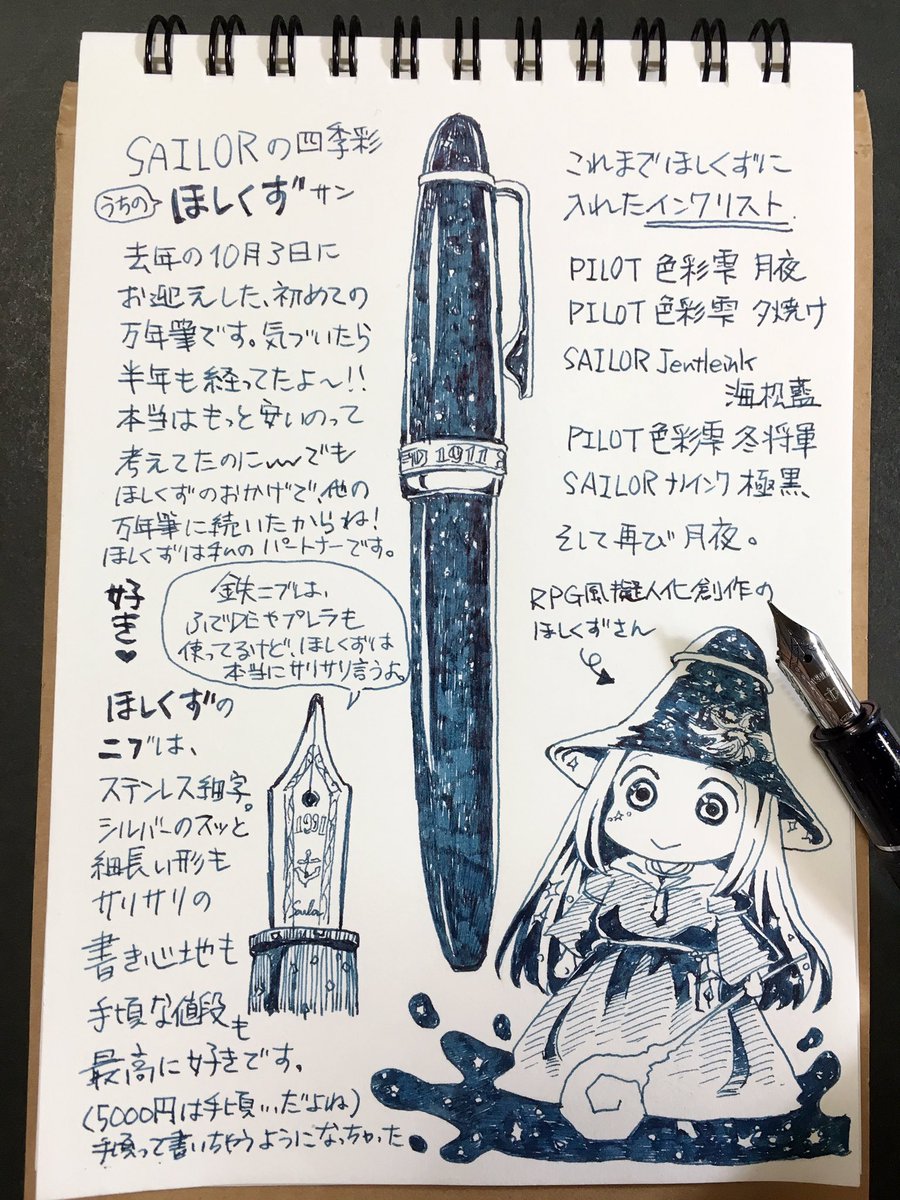 SAILORの四季彩
うちの ほしくずサン
去年の10月3日に
お迎えした、初めての
万年筆です。気づいたら
半年も経ってたよ〜!!
本当はもっと安いのって
考えてたのに〰でも
ほしくずのおかげで、他の
万年筆に続いたからね!
ほしくずは私の パートナーです。
好き♥
鉄ニブは、
ふでDEやプレラも
使ってるけど、ほしくずは
本当にサリサリ言うよ。
ほしくずの
ニブは、
ステンレス細字。
シルバーのスッと
細長い形も
サリサリの
書き心地も
手頃な値段も
最高に好きです。
(5000円は手頃…だよね)
手頃って書いちゃうようになっちゃった
1911
1911
Sailor
これまでほしくずに
入れたインクリスト.
PILOT 色彩雫 月夜
PILOT 色彩雫 夕焼け
SAILOR Jentleink
海松藍
PILOT 色彩雫 冬将軍
SAILOR ナノインク 極黒
そして再び月夜。
RPG風擬人化創作の
ほしくずさん